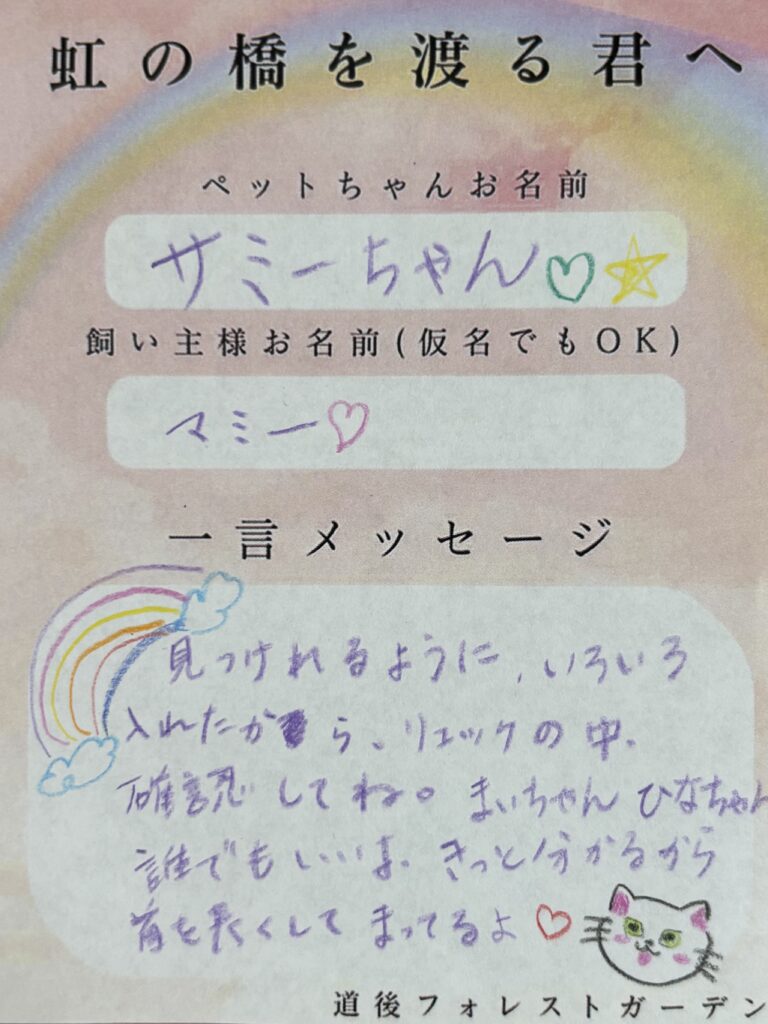 虹の橋を渡る君へ
ペットちゃんお名前
サミーちゃん♡☆
飼い主様お名前(仮名でもOK)
マミー♡
一言メッセージ
見つけれるように、いろいろ
入れたから、リュックの中、
確認してね。まいちゃんひなちゃん
誰でもいいよ。きっと分かるから
首を長くしてまってるよ♡
道後フォレストガーデン